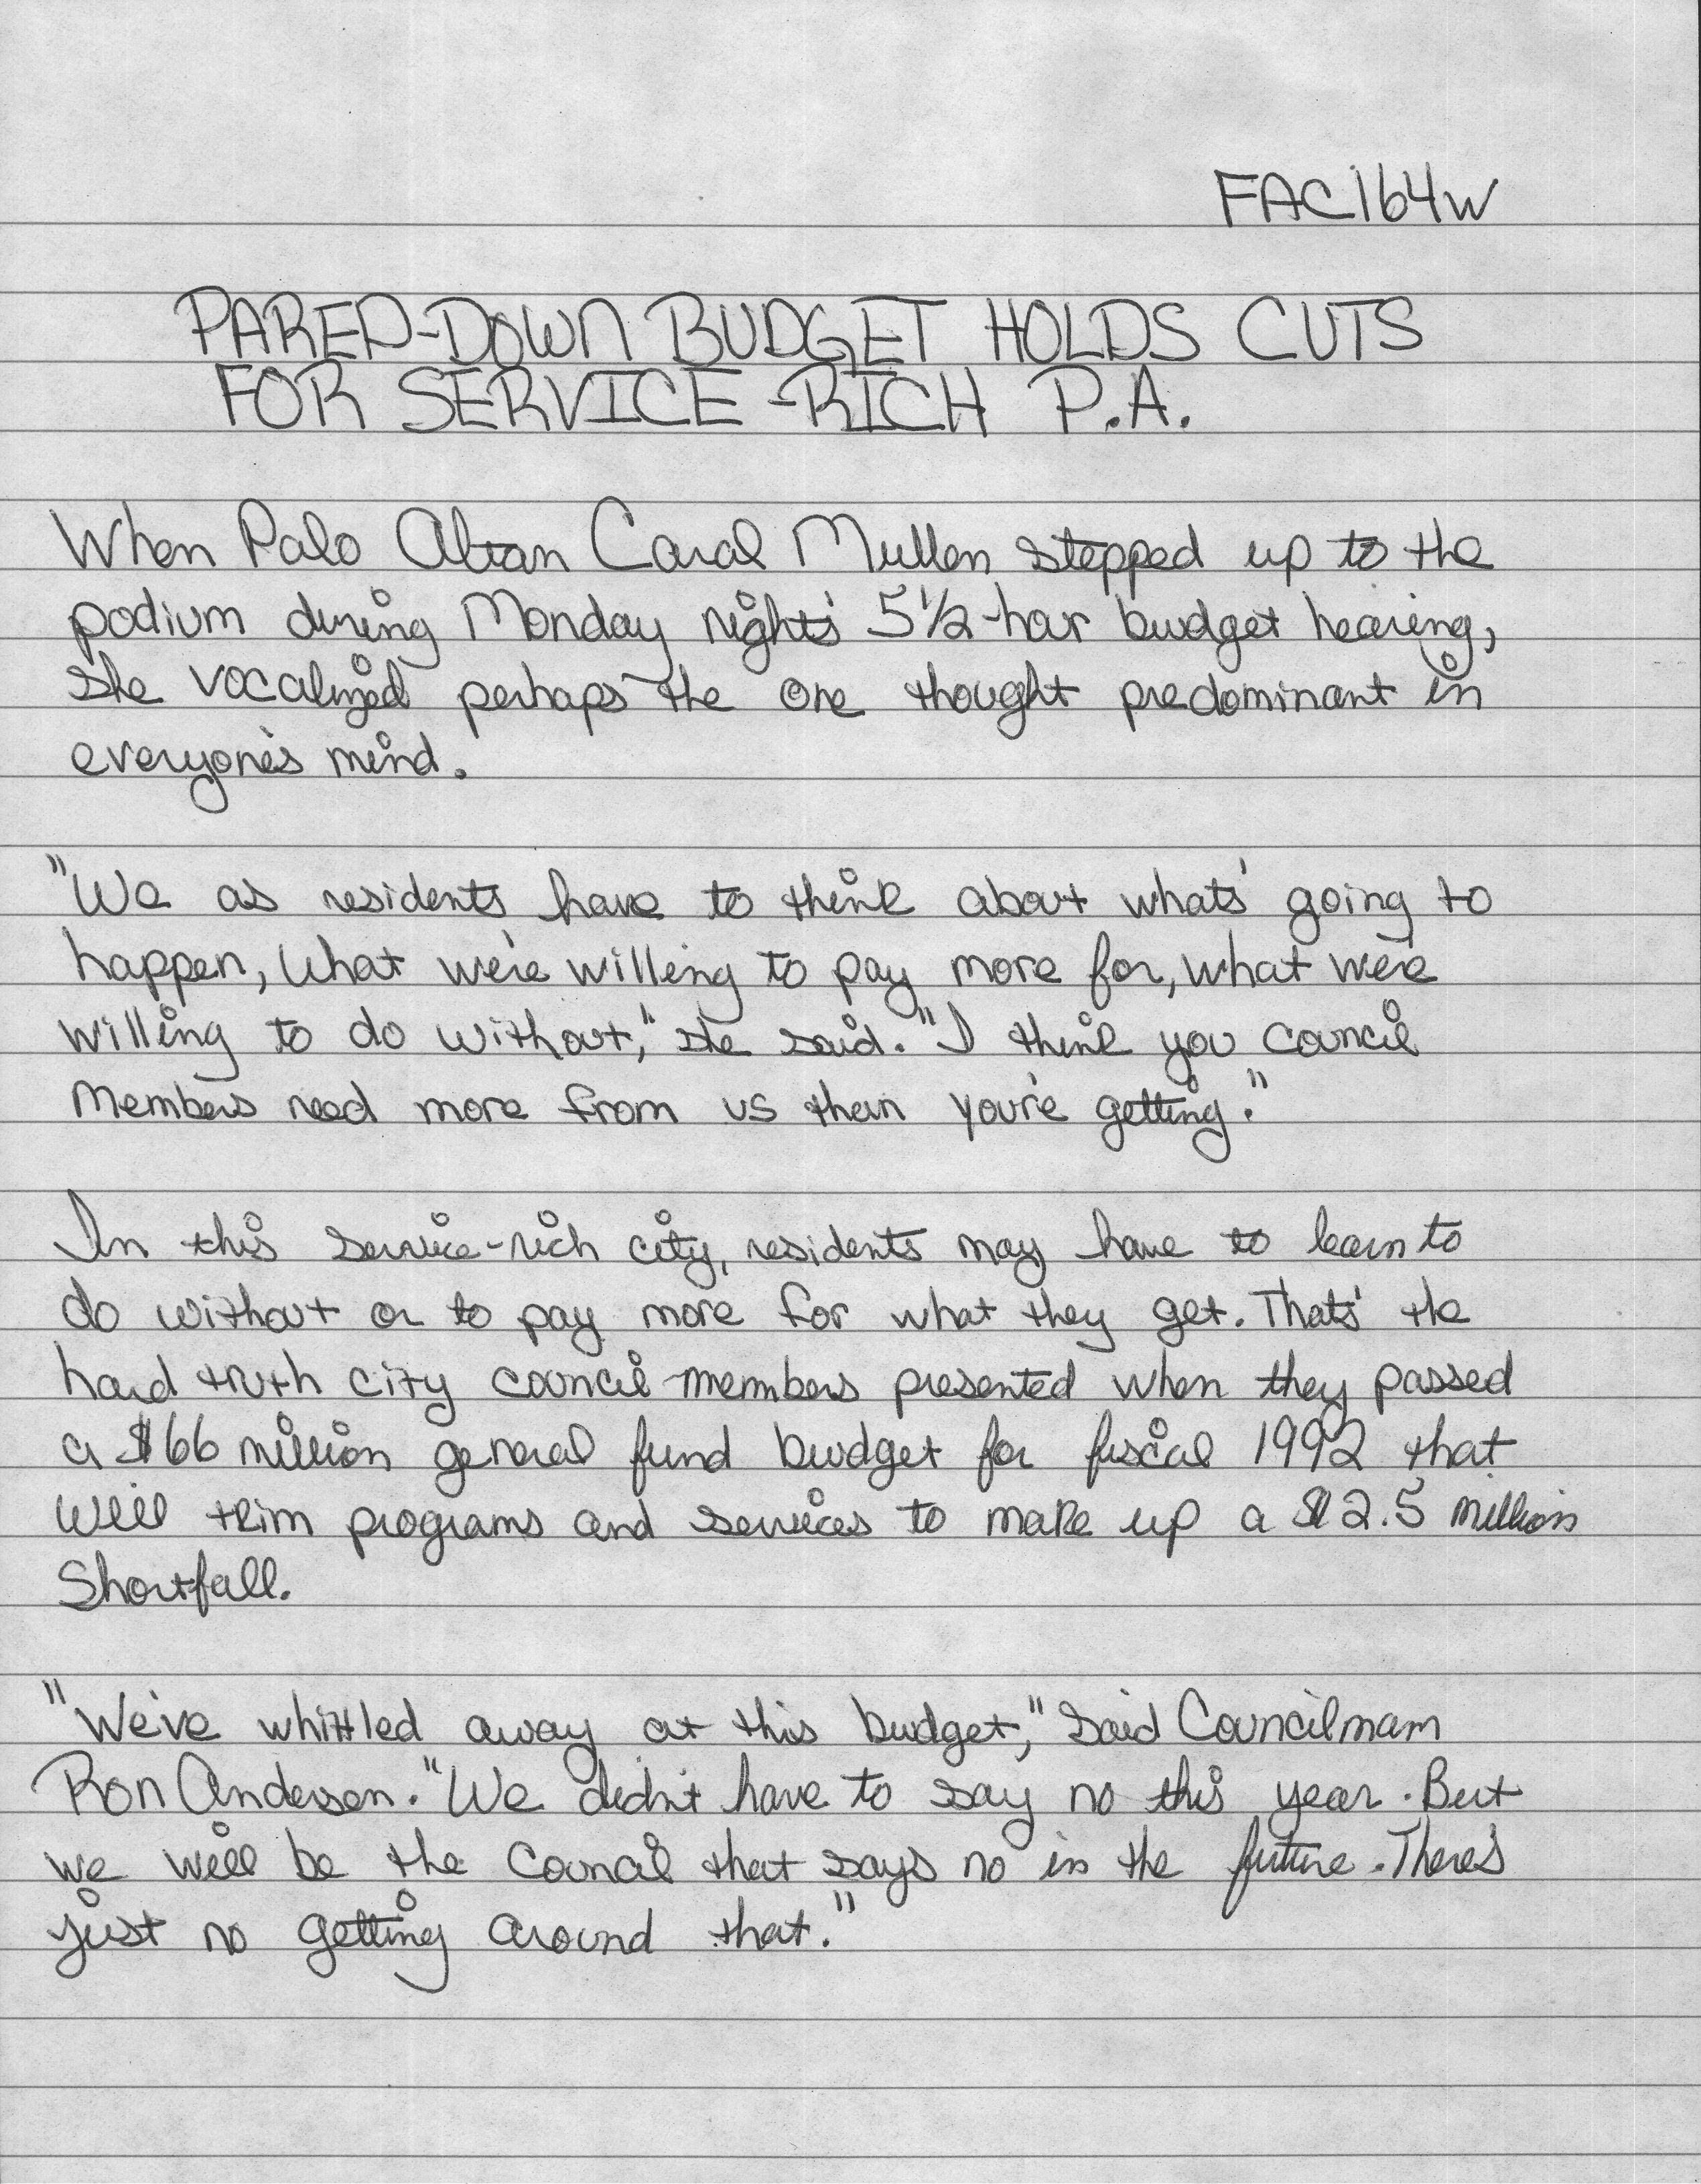 FAC164W
PARED-DOWN BUDGET HOLDS CUTS
FOR SERVICE-RICH P.A.
When Palo Altan Caral Mullen stepped up to the
podium during Monday night's 5 1/2-hour budget hearing,
she vocalized perhaps the one thought predominant in
everyone's mind.
"We as residents have to think about what's going to
happen, what we're willing to pay more for, what we're
willing to do without," she said. "I think you council
members need more from us than you're getting."
In this service-rich city, residents may have to learn to
do without or to pay more for what they get. That's the
hard truth city council members presented when they passed
a $66 million general fund budget for fiscal 1992 that
will trim programs and services to make up a $2.5 million
shortfall.
"We've whittled away at this budget," said Councilman
Ron Anderson. "We didn't have to say no this year. But
we will be the council that says no in the future. There's
just no getting around that."